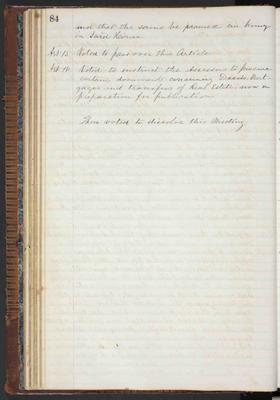 84
and that the same be placed and hung
in said House
Art 15 Voted to pass over this Article
Art 16 Voted to instruct the Assessors to procure
certain documents concerning Deeds, Mort-
gages and transfers of Real Estate now in
preparation for publication
Then voted to dissolve this Meeting